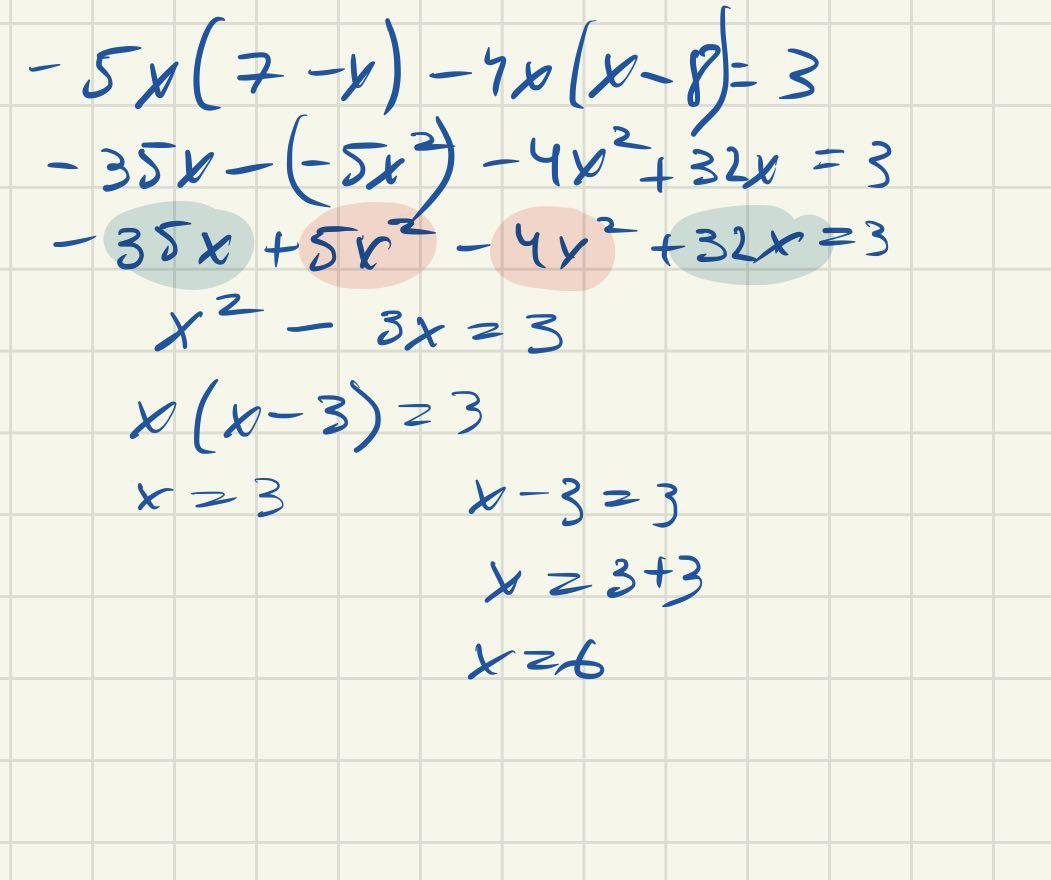 -5x(7-x)-4x(x-8)=3
-35x-(-5x²)-4x²+32x=3
-35x+5x²-4x²+32x=3
x²-3x=3
x(x-3)=3
x=3 x-3=3
x=3+3
x=6